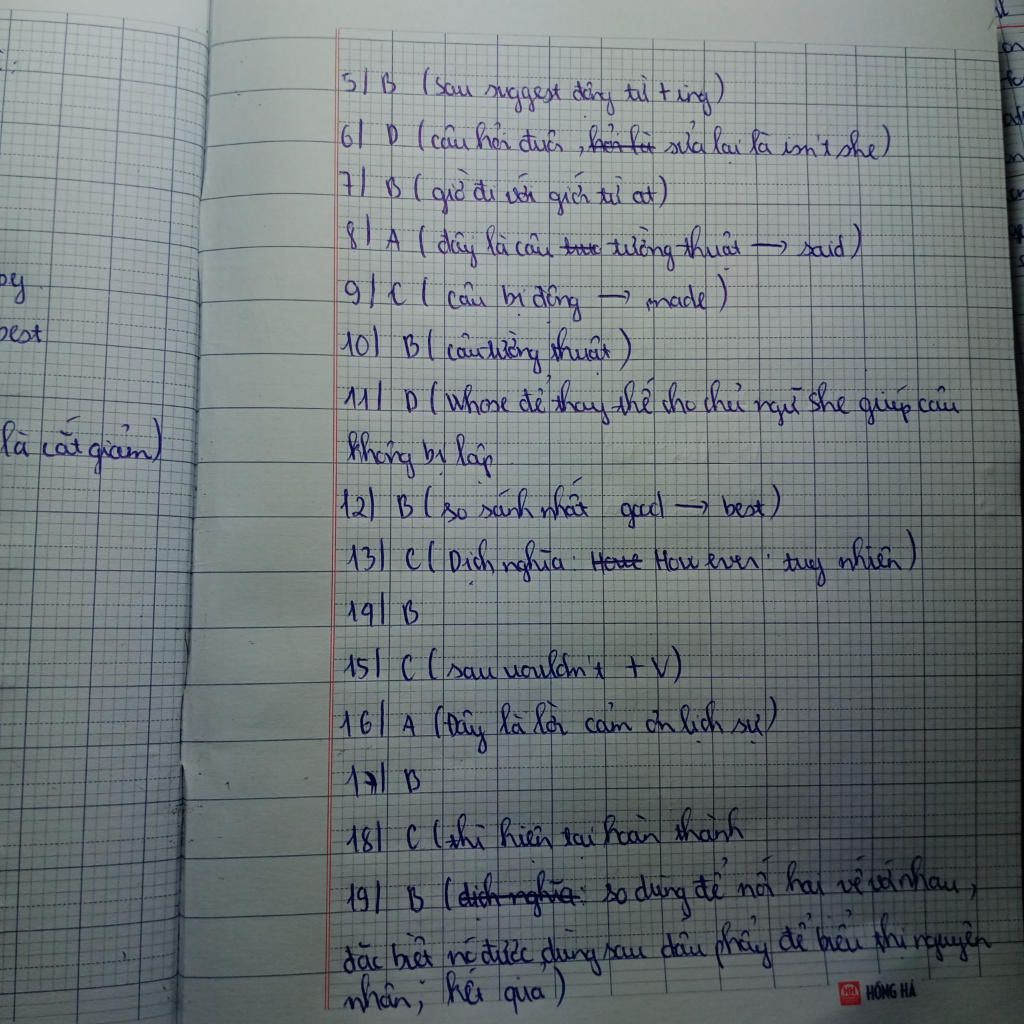 py
best
là cắt giảm)
5/ B (sau suggest động từ + ing)
6/ D (câu hỏi đuôi, sửa lại là isn't she)
7/ B (giờ đi với giới từ at)
8/ A (đây là câu tường thuật → said)
9/ C (câu bị động → made)
10/ B (câu tường thuật)
11/ D (Whose để thay thế cho chủ ngữ she giúp câu
không bị lặp
12/ B (so sánh nhất good → best)
13/ C (Dịch nghĩa: How ever: tuy nhiên)
19/ B
15/ C (sau wouldn't + V)
16/ A (Đây là lời cảm ơn lịch sự)
17/ B
18/ C (thì hiện tại hoàn thành
19/ B (dịch nghĩa: so dùng để nối hai vế với nhau,
đặc biệt nó được dùng sau dấu phẩy để biểu thị nguyên
nhân, kết quả)
HH HỒNG HÀ